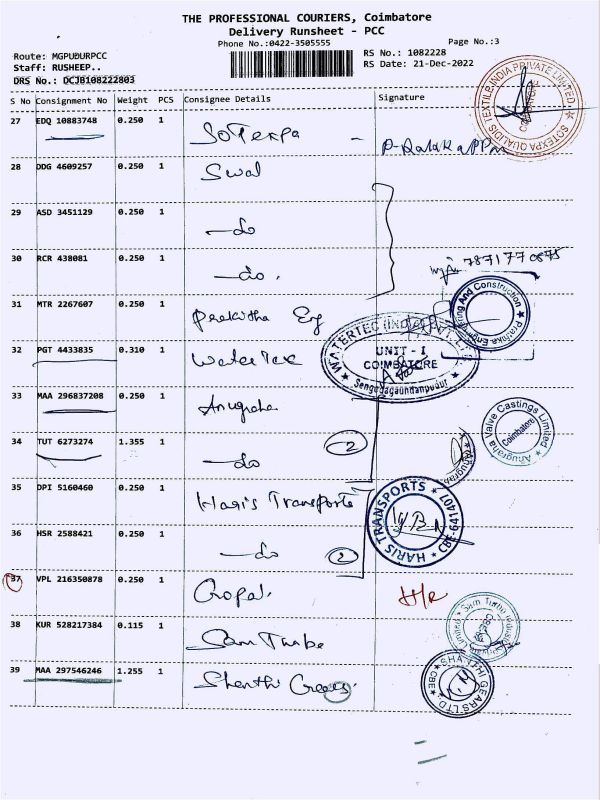 THE PROFESSIONAL COURIERS, Coimbatore
Delivery Runsheet - PCC
Phone No.:0422-3505555
Page No.:3
Route: MGPUDURPCC
RS No.: 1082228
Staff: RUSHEEP..
RS Date: 21-Dec-2022
DRS No.: DCJB108222803
S No Consignment No Weight PCS Consignee Details Signature
27 EDQ 10883748 0.250 1 Sotexpa -
SOTEXPA QUALIDIS TEXTILE INDIA PRIVATE LIMITED COIMBATORE
28 DDG 4609257 0.250 1 Swal
29 ASD 3451129 0.250 1 - do
30 RCR 438081 0.250 1 - do.
7871770875
31 MTR 2267607 0.250 1 Prakitha Eng
Prathika Engineering And Construction
32 PGT 4433835 0.310 1 Watertec
WATERTEC (INDIA) PVT LTD
UNIT - I
COIMBATORE
33 MAA 296837208 0.250 1 Anugraha
Anugraha Valve Castings Limited
Coimbatore
34 TUT 6273274 1.355 1 - do 2
Anugraha
35 DPI 5160460 0.250 1 Haris Transports
HARIS TRANSPORTS CBE-641407
36 HSR 2588421 0.250 1 - do 2
37 VPL 216350878 0.250 1 Gopal.
38 KUR 528217384 0.115 1 Sam Turbo
Sam Turbo Industry Private Limited
39 MAA 297546246 1.255 1 Shanthi Gears.
SHANTHI GEARS LIMITED CBE